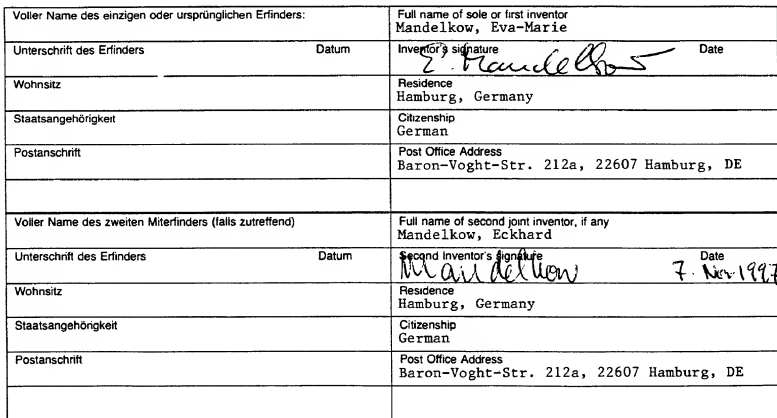 Voller Name des einzigen oder ursprünglichen Erfinders:
Full name of sole or first inventor
Mandelkow, Eva-Marie
Unterschrift des Erfinders Datum
Inventor's signature Date
E. Mandelkow
Wohnsitz
Residence
Hamburg, Germany
Staatsangehörigkeit
Citizenship
German
Postanschrift
Post Office Address
Baron-Voght-Str. 212a, 22607 Hamburg, DE
Voller Name des zweiten Miterfinders (falls zutreffend)
Full name of second joint inventor, if any
Mandelkow, Eckhard
Unterschrift des Erfinders Datum
Second Inventor's signature Date
Mandelkow 7. Nov. 1997
Wohnsitz
Residence
Hamburg, Germany
Staatsangehörigkeit
Citizenship
German
Postanschrift
Post Office Address
Baron-Voght-Str. 212a, 22607 Hamburg, DE